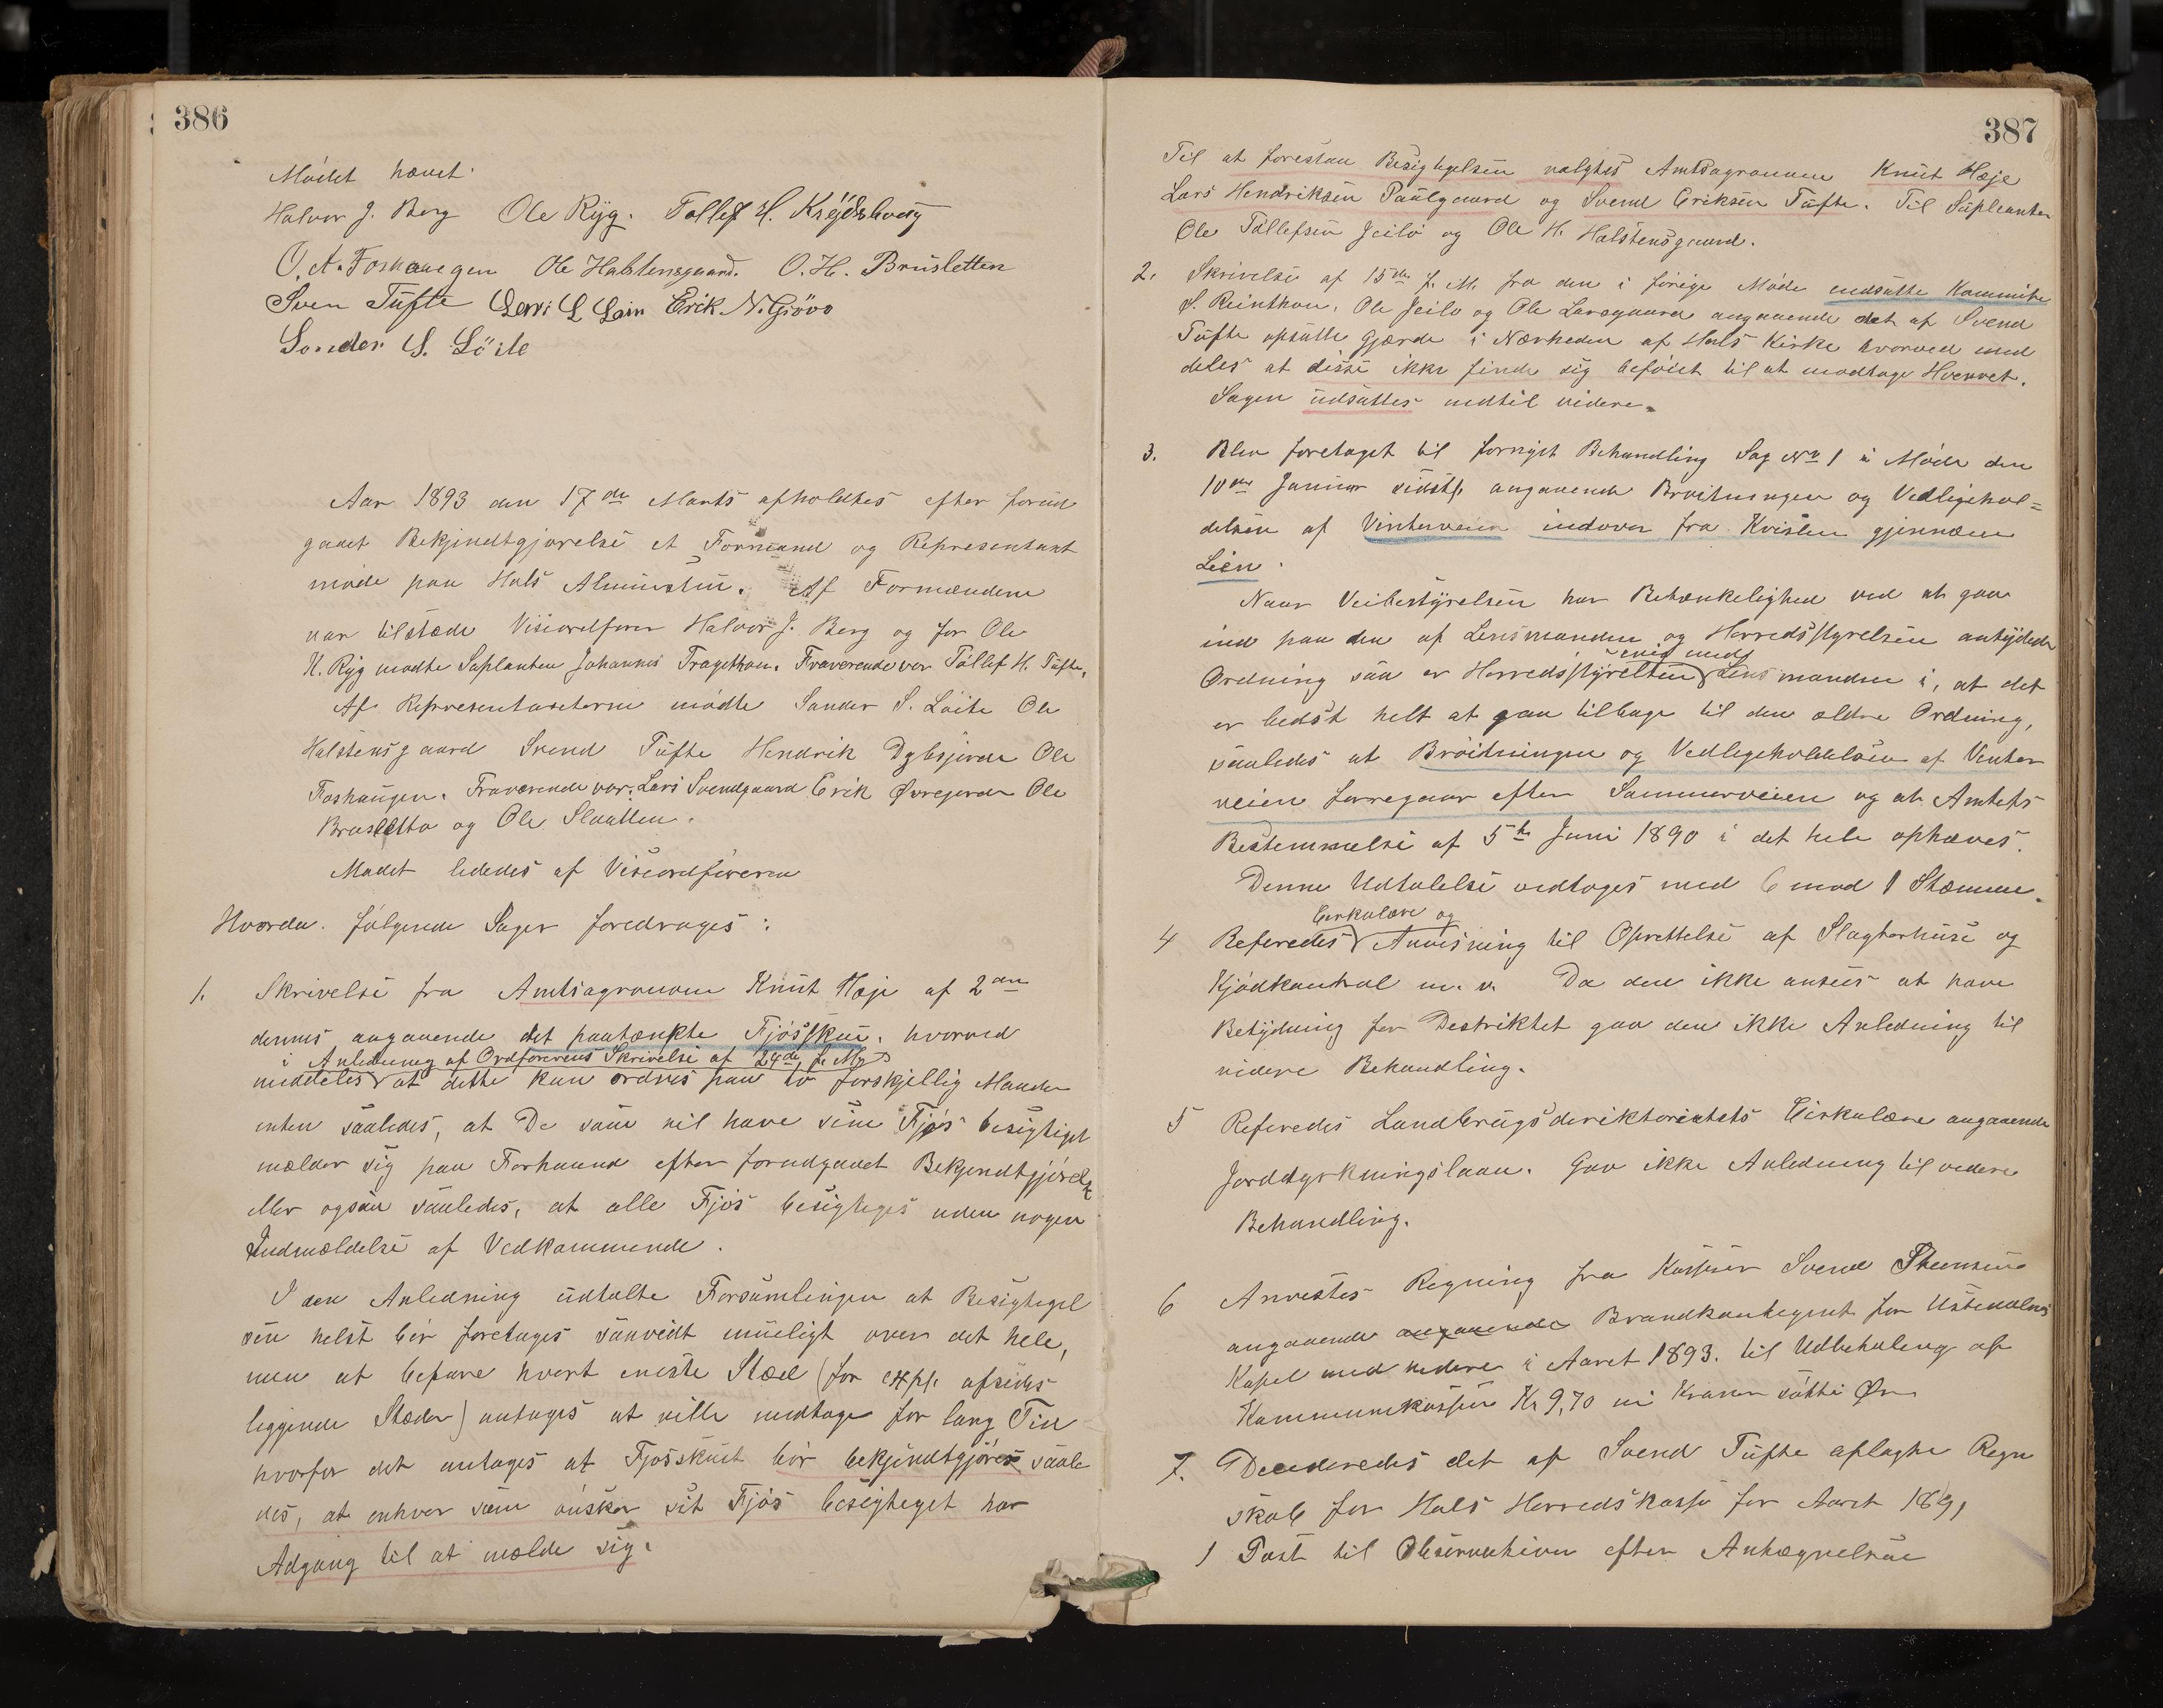 386
Mødet hævet.
Halvor J. Berg Ole Ryg. Tollef H.
O. A. Foshaugen Ole Halstensgaard. O. H. Brusletten
Sven Tufte Erik N. Giövo
Sander S. Löite
Aar 1893 den 17de Marts afholdtes efter forud
gaaet Bekjendtgjørelse et Formand og Representant
møde paa Hols Almuestue. Af Formændene
var tilstæde Viseordfører Halvor J. Berg og for Ole
H. Ryg mødte Suplanten Johannes Tragethon. Fraværende var Tollef H. Tufte.
Af Representanterne mødte Sander S. Löite Ole
Halstensgaard Svend Tufte Hendrik Dybsjorde Ole
Foshaugen. Fraværende var: Lars Svendgaard Erik Øvregjorde Ole
Brusletto og Ole Slaatten.
Mødet lededes af Viseordføreren
Hvorda følgende Sager foredroges:
1. Skrivelse fra Amtsagronom Knut Hæje af 2den
dennes angaaende det paatænkte Fjøsskue, hvorved
i Anledning af Ordførerens Skrivelse af 24de f. M.
meddeles at dette kan ordnes paa to forskjellig Maader
enten saaledes, at De som vil have sine Fjøs besigtiget
mælder sig paa Forhaand efter forudgaaet Bekjendtgjørelse
eller ogsaa saaledes, at alle Fjøs besigtiges uden nogen
Indmældelse af Vedkommende.
I den Anledning udtalte Forsamlingen at Besigtigel
sen helst bør foretages saavidt mueligt over det hele,
men at befare hvert eneste Stæd (for expl. afsides
liggende Stæder) antages at ville medtage for lang Tid
hvorfor det antages at Fjøsskuet bør bekjendtgjøres saale
des, at enhver som ønsker sit Fjøs besigtiget har
Adgang til at mælde sig.
387
Til at forestaa Besigtigelsen valgtes Amtsagronom Knut Hæje
Lars Hendriksen Paulgaard og Svend Eriksen Tufte. Til Supleanter
Ole Tollefsen Jeilo og Ole H. Halstensgaard.
2. Skrivelse af 15de f. M. fra den i forrige Møde nedsatte Kommite
S. Reinthon, Ole Jeilo og Ole Larsgaard angaaende det af Svend
Tufte opsatte Gjærde i Nærheden af Hols Kirke hvorved med
deles at disse ikke finde sig beføiet til at modtage Hvervet.
Sagen udsættes indtil videre.
3. Blev foretaget til fornyet Behandling Sag No 1 i Møde den
10de Januar sidstl. angaaende Brøitningen og Vedligehol=
delsen af Vinterveien indover fra Kvislen gjennem
Lien.
Naar Veibestyrelsen har Betænkelighed ved at gaa
ind paa den af Lensmanden og Herredsstyrelsen antydede
enig med
Ordning saa er Herredsstyrelsen Lensmanden i, at det
er bedst helt at gaa tilbage til den ældre Ordning,
saaledes at Brøitningen og Vedligeholdelsen af Vinter
veien foregaar efter Sommerveien og at Amtets
Bestemmelse af 5te Juni 1890 i det hele ophæves.
Denne Udtalelse vedtoges med 6 mod 1 Stemme.
Cirkulære og
4 Referedes Anvisning til Oprettelse af Slagterhuse og
Kjødkontrol m. v. Da den ikke ansees at have
Betydning for Destriktet gav den ikke Anledning til
videre Behandling.
5 Referedes Landbrugsdirektoriatets Cirkulære angaaende
Jorddyrkningslaan. Gav ikke Anledning til videre
Behandling.
6 Anvistes Regning fra Kasserer Svend
angaaende angaaende Brandkontegent for Ustedalens
Kapel med videre i Aaret 1893. til Udbetaling af
Kommunekassen Kr 9,70 ni Kroner søtti Øre
7. Desideredes det af Svend Tufte aflagte Regn
skab for Hols Herredskasse for Aaret 1891
1 Post til Observation efter Antegnelsen